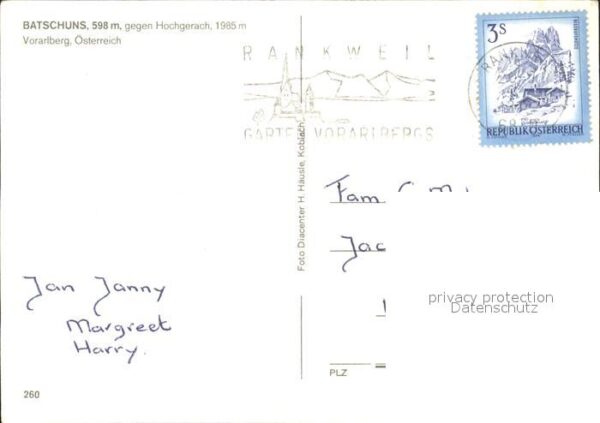 BATSCHUNS, 598 m, gegen Hochgerach, 1985 m
Vorarlberg, Österreich
RANKWEIL
GARTEN VORARLBERGS
3 S
REPUBLIK ÖSTERREICH
Foto Diacenter H. Häusle, Koblach
Fam
Jac
Jan Janny
Margreet
Harry.
privacy protection
Datenschutz
PLZ
260